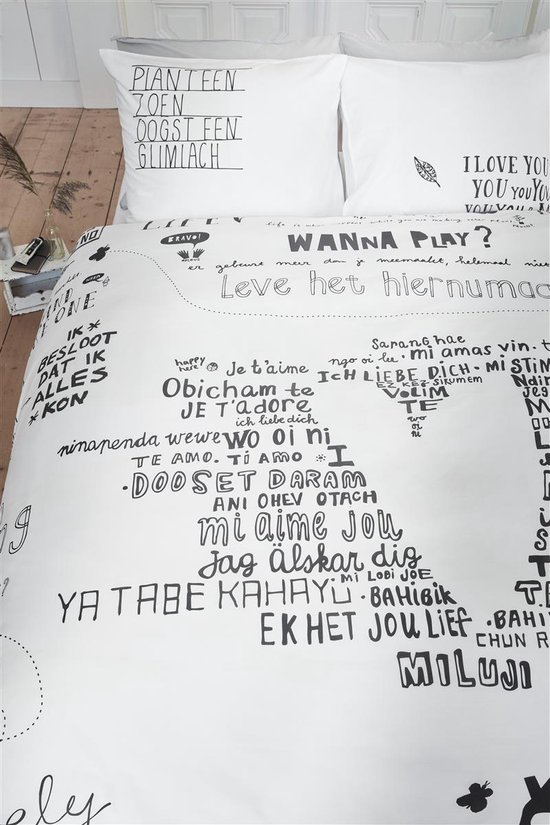 PLANT EEN
ZOEN
OOGST EEN
GLIMLACH
I LOVE YOU
YOU YOU YOU
YOU YOU
BRAVO!
NO
WANNA PLAY?
er gebeurt meer dan je meemaakt, helemaal niet
Leve het hiernumaa
IK
BESLOOT
DAT IK
ALLES
KON
Sarang hae
ngo oi lu. mi amas vin. t
happy here
Je t'aime
ICH LIEBE DICH. MI STIM
EZ KEZ SIKUMEM
Obicham te
VOLIM
JE T'ADORE
TE
ich liebe dich
wo
oi
ni
ninapenda wewe WO OI NI
TE AMO. TI AMO I
.DOOSET DARAM
ANI OHEV OTACH
mi aime jou
Jag Älskar dig
MI LOBI JOE
YA TABE KAHAYU .BAHIBIK
EK HET JOU LIEF .BAHI
CHUN R
MILUJI
ely